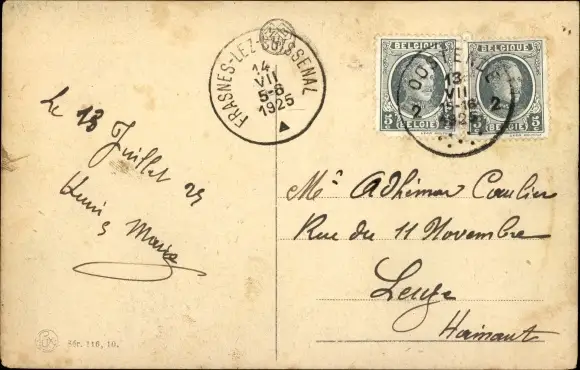 FRASNES-LEZ-BUISSENAL
14
VII
5-6
1925
BELGIQUE
5
(BELGIË)
BELGIQUE
5
(BELGIË)
13
VII
15-16
1925
2
2
Le 13
Juillet 25
Mr Adhémar Coulier
Rue du 11 Novembre
Leuze
Hainaut
Sér. 116, 10.